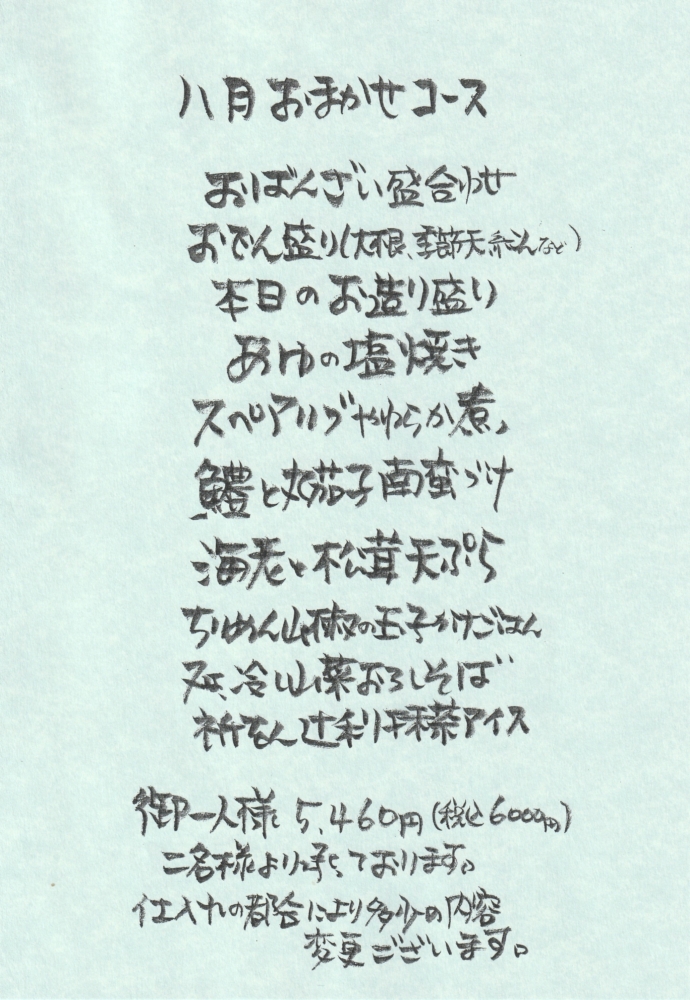 八月おまかせコース
おばんざい盛合わせ
おでん盛り(大根、季節天ぷらなど)
本日のお造り盛り
あゆの塩焼き
スペアリブやわらか煮
鱧と丸茄子南蛮づけ
海老と松茸天ぷら
ちりめん山椒の玉子かけごはん
又は、冷し山菜おろしそば
祇をん辻利抹茶アイス
御一人様 5,460円(税込6000円)
二名様より承っております。
仕入れの都合により多少の内容
変更ございます。